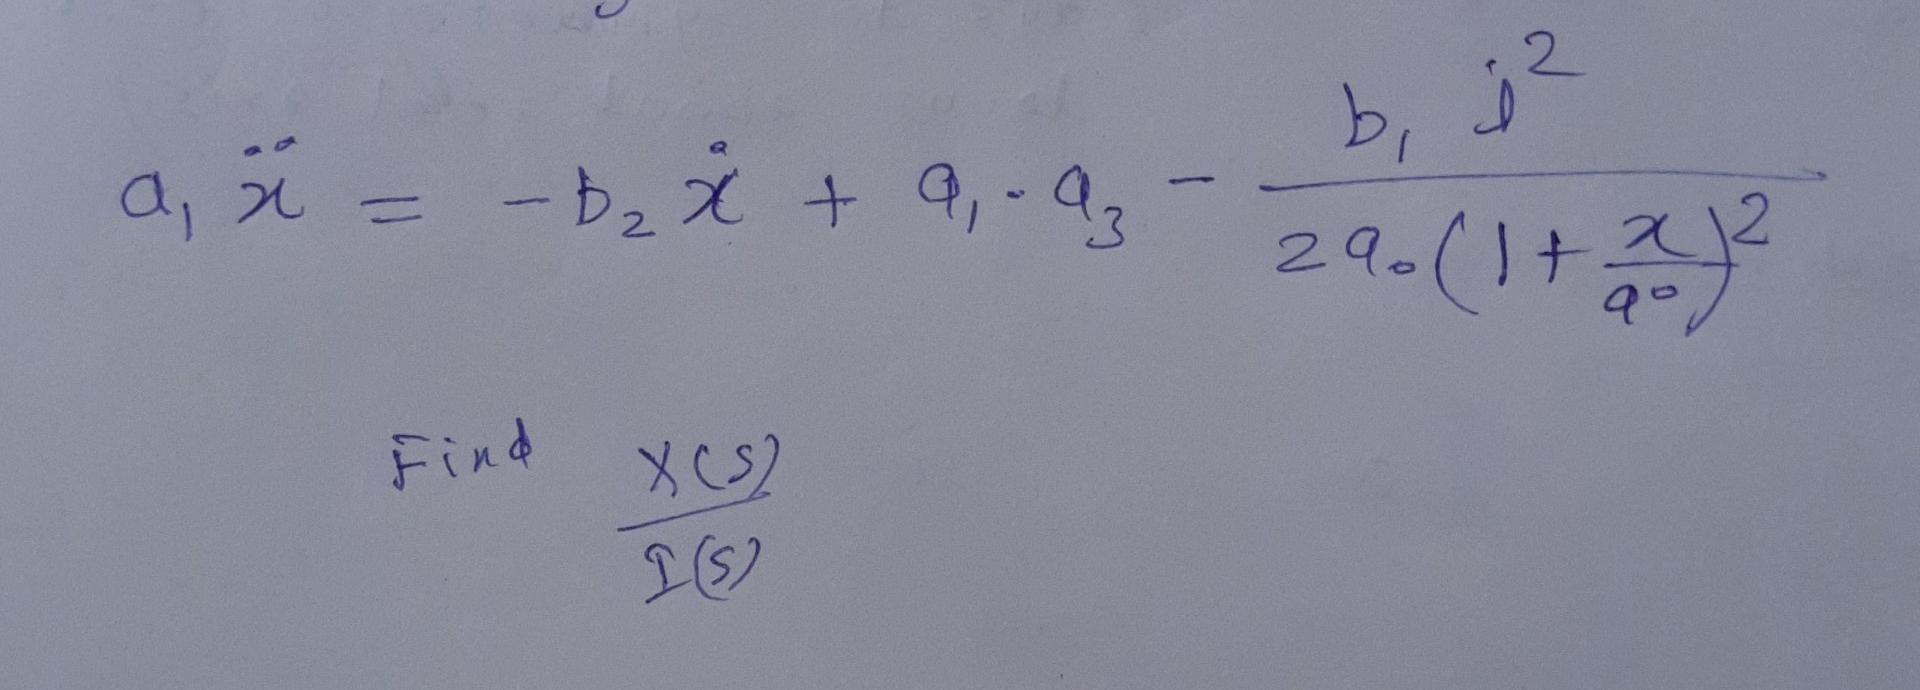 a₁ẍ = -b₂ẋ + a₁·a₃ - b₁i²/2a₀(1+x/a₀)²
Find X(s)/I(s)